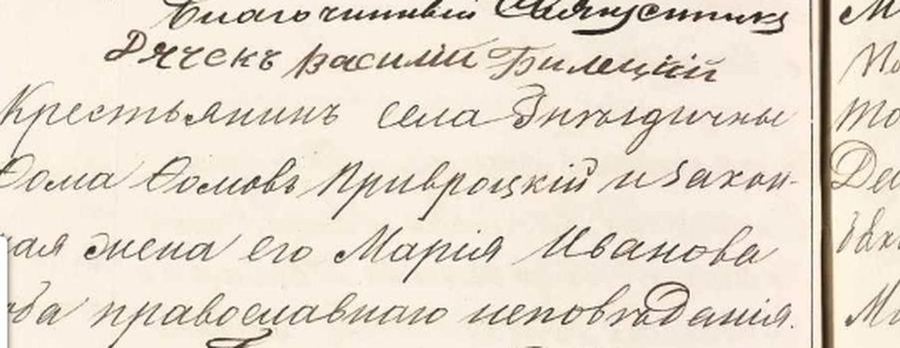 Благочинный Священникъ
Дячекъ Василій Билецкій
Крестьянинъ села
Ѳома Ѳомовъ Привроцкій и закон-
ная жена его Марія Иванова
оба православнаго исповѣданія.